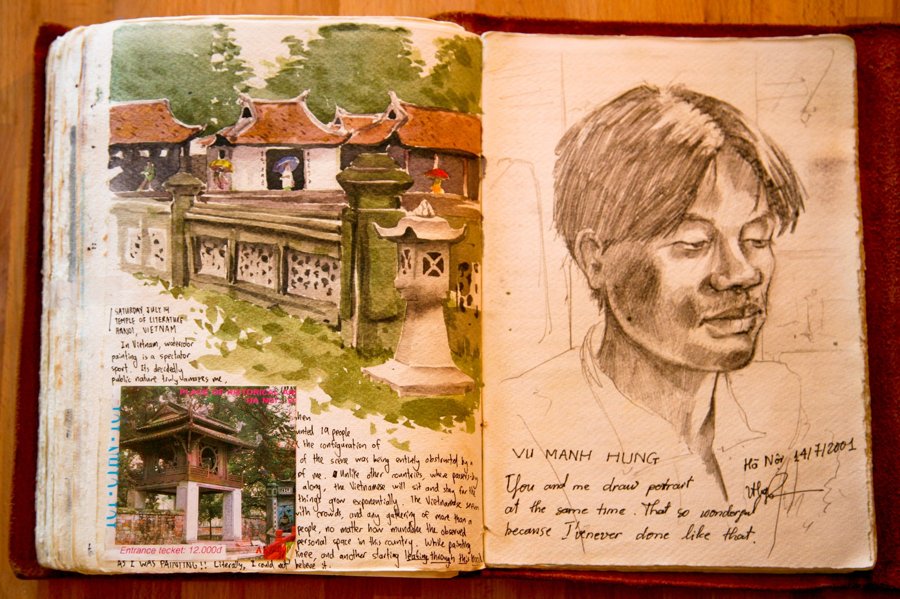 SATURDAY, JULY 14
TEMPLE OF LITERATURE
HANOI, VIETNAM
In Vietnam, watercolor
painting is a spectator
sport. Its decidedly
public nature truly amazes me,
when
19 people
the configuration of
of the scene was being entirely obstructed by a
of me. Unlike other countries where passers-by
along, the Vietnamese will sit and stay for
things grow exponentially. The Vietnamese seem
with crowds, and any gathering of more than a
people, no matter how mundane the observed
personal space in this country. While painting
knee, and another starting leafing through this book
AS I WAS PAINTING!! Literally, I could not believe it.
Entrance tecket: 12.000đ
VU MANH HUNG
Hà Nội 14/7/2001
You and me draw portrait
at the same time. That so wonderful
because I never done like that.